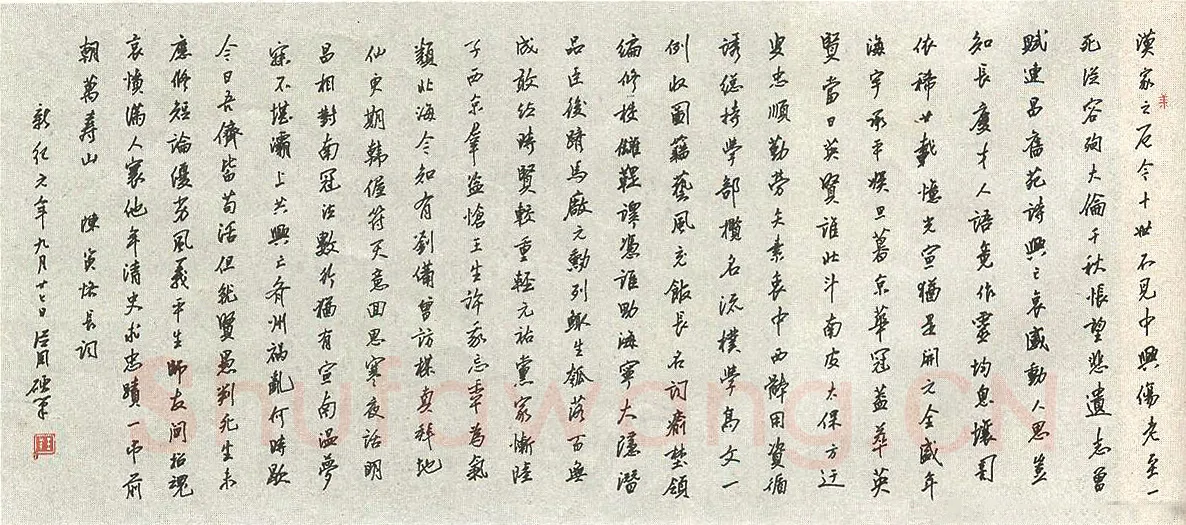 漢家之厄今十世不見中興傷老至一
死從容殉大倫千秋悵望悲遺志曾
賦連昌舊苑詩興亡哀感動人思豈
知長慶才人語竟作靈均息壤詞
依稀廿載憶光宣猶是開元全盛年
海宇承平娛旦暮京華冠蓋萃英
賢當日英賢誰北斗南皮太保方迂
叟忠順勤勞矢素衷中西體用資循
誘總持學部攬名流樸學高文一
例收圖籍藝風充館長名詞愈埜領
編修校讎鞮譯憑誰助海寧大隱潛
品臣後躋馬廠元勳列鯫生瓠落百無
成敢並時賢較重輕元祐黨家慚陸
子西京羣盜愴王生許我忘年為氣
類北海今知有劉備曾訪梅真拜地
仙更期韓偓符天意回思寒夜話明
昌相對南冠泣數行猶有宣南溫夢
寐不堪灞上共興亡齊州禍亂何時歇
今日吾儕皆苟活但就賢愚判死生未
應修短論優劣風義平生師友間招魂
哀憤滿人寰他年清史求忠蹟一弔前
朝萬壽山 陳寅恪長詞
新紀元年九月廿七日 周硬筆
Shufawang.CN